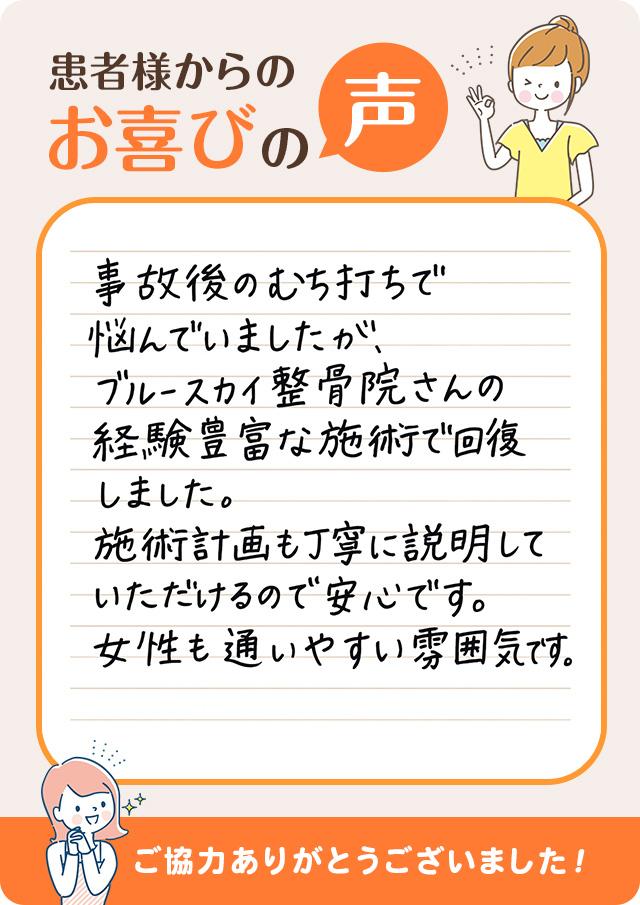 患者様からの
お喜びの声
事故後のむち打ちで
悩んでいましたが、
ブルースカイ整骨院さんの
経験豊富な施術で回復
しました。
施術計画も丁寧に説明して
いただけるので安心です。
女性も通いやすい雰囲気です。
ご協力ありがとうございました!